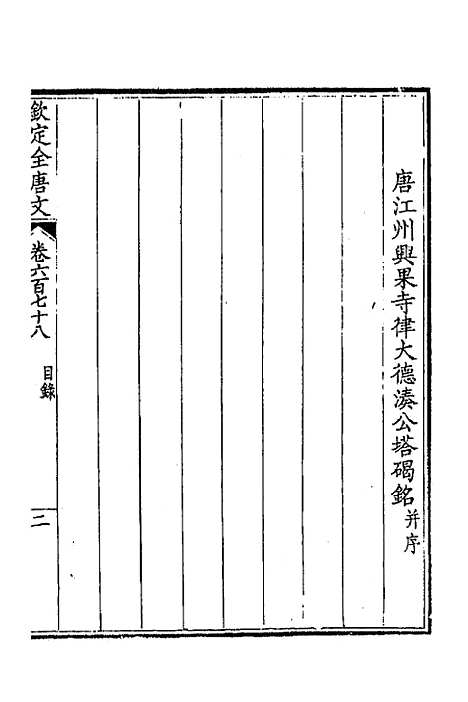 唐江州興果寺律大德湊公塔碣銘并序
欽定全唐文 卷六百七十八 目錄 二